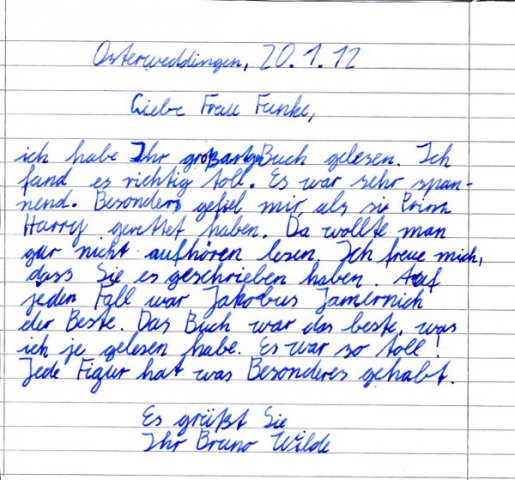 Osterweddingen, 20.1.12
Liebe Frau Funke,
ich habe Ihr großartige Buch gelesen. Ich
fand es richtig toll. Es war sehr span-
nend. Besonders gefiel mir als sie Prinz
Harry gerettet haben. Da wollte man
gar nicht aufhören lesen. Ich freue mich,
dass Sie es geschrieben haben. Auf
jeden Fall war Jakobus Jamernich
der Beste. Das Buch war das beste, was
ich je gelesen habe. Es war so toll!
Jede Figur hat was Besonderes gehabt.
Es grüßt Sie
Ihr Bruno Wilde